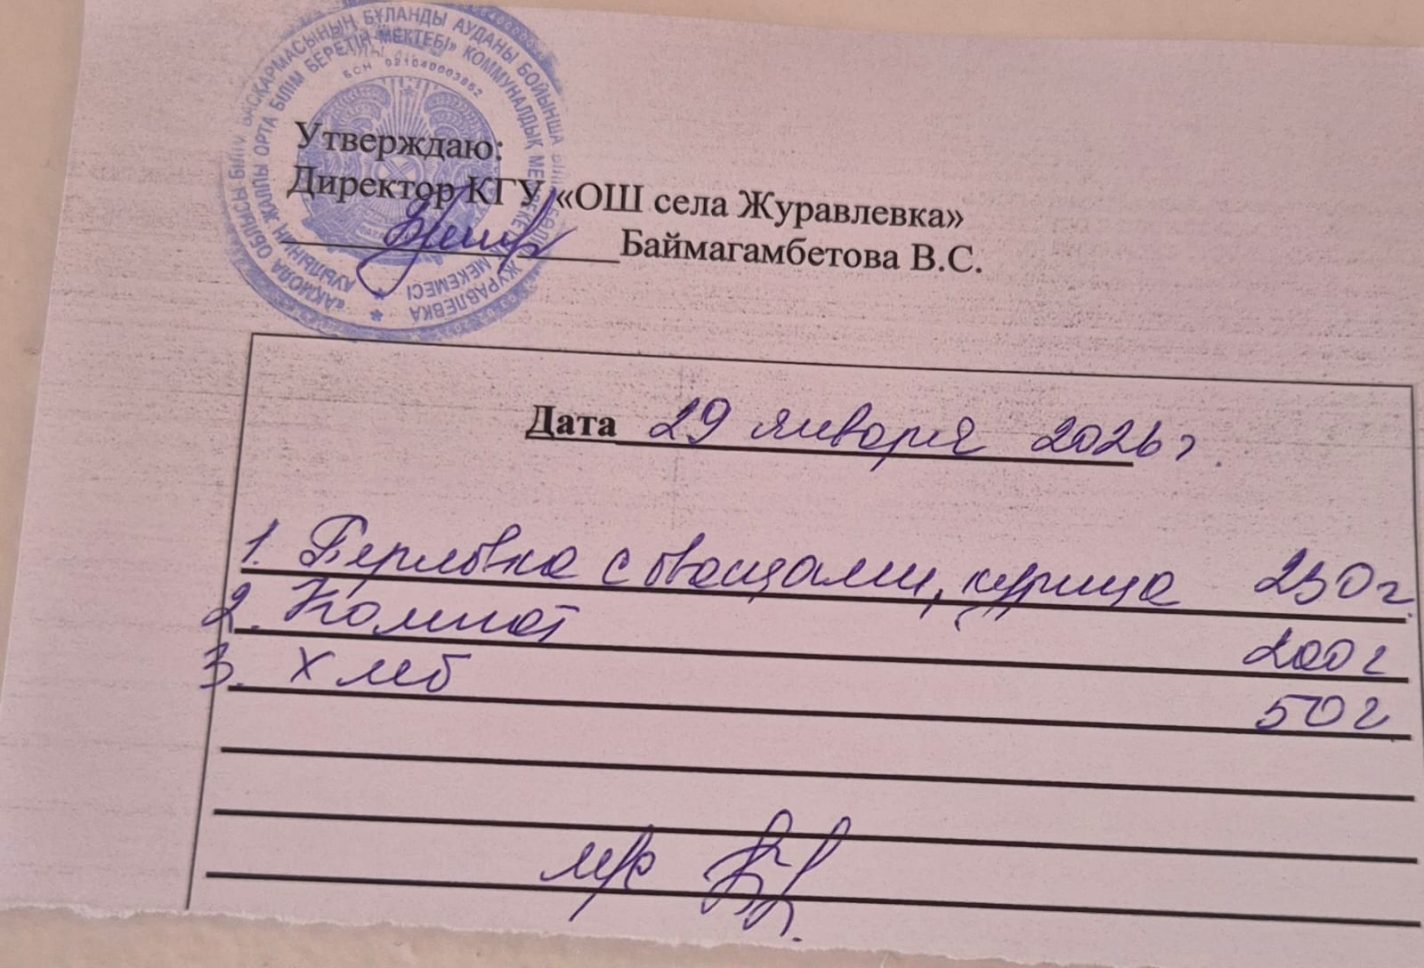 «АҚМОЛА ОБЛЫСЫ БІЛІМ БАСҚАРМАСЫНЫҢ БҰЛАНДЫ АУДАНЫ БОЙЫНША БІЛІМ БӨЛІМІ ЖУРАВЛЕВКА
АУЫЛЫНЫҢ ЖАЛПЫ ОРТА БІЛІМ БЕРЕТІН МЕКТЕБІ» КОММУНАЛДЫҚ МЕМЛЕКЕТТІК МЕКЕМЕСІ
БСН 021040003852
Утверждаю:
Директор КГУ «ОШ села Журавлевка»
Баймагамбетова В.С.
Дата 29 января 2026 г.
1. Перловка с овощами, курица 250 г
2. Компот 200 г
3. Хлеб 50 г
м/с